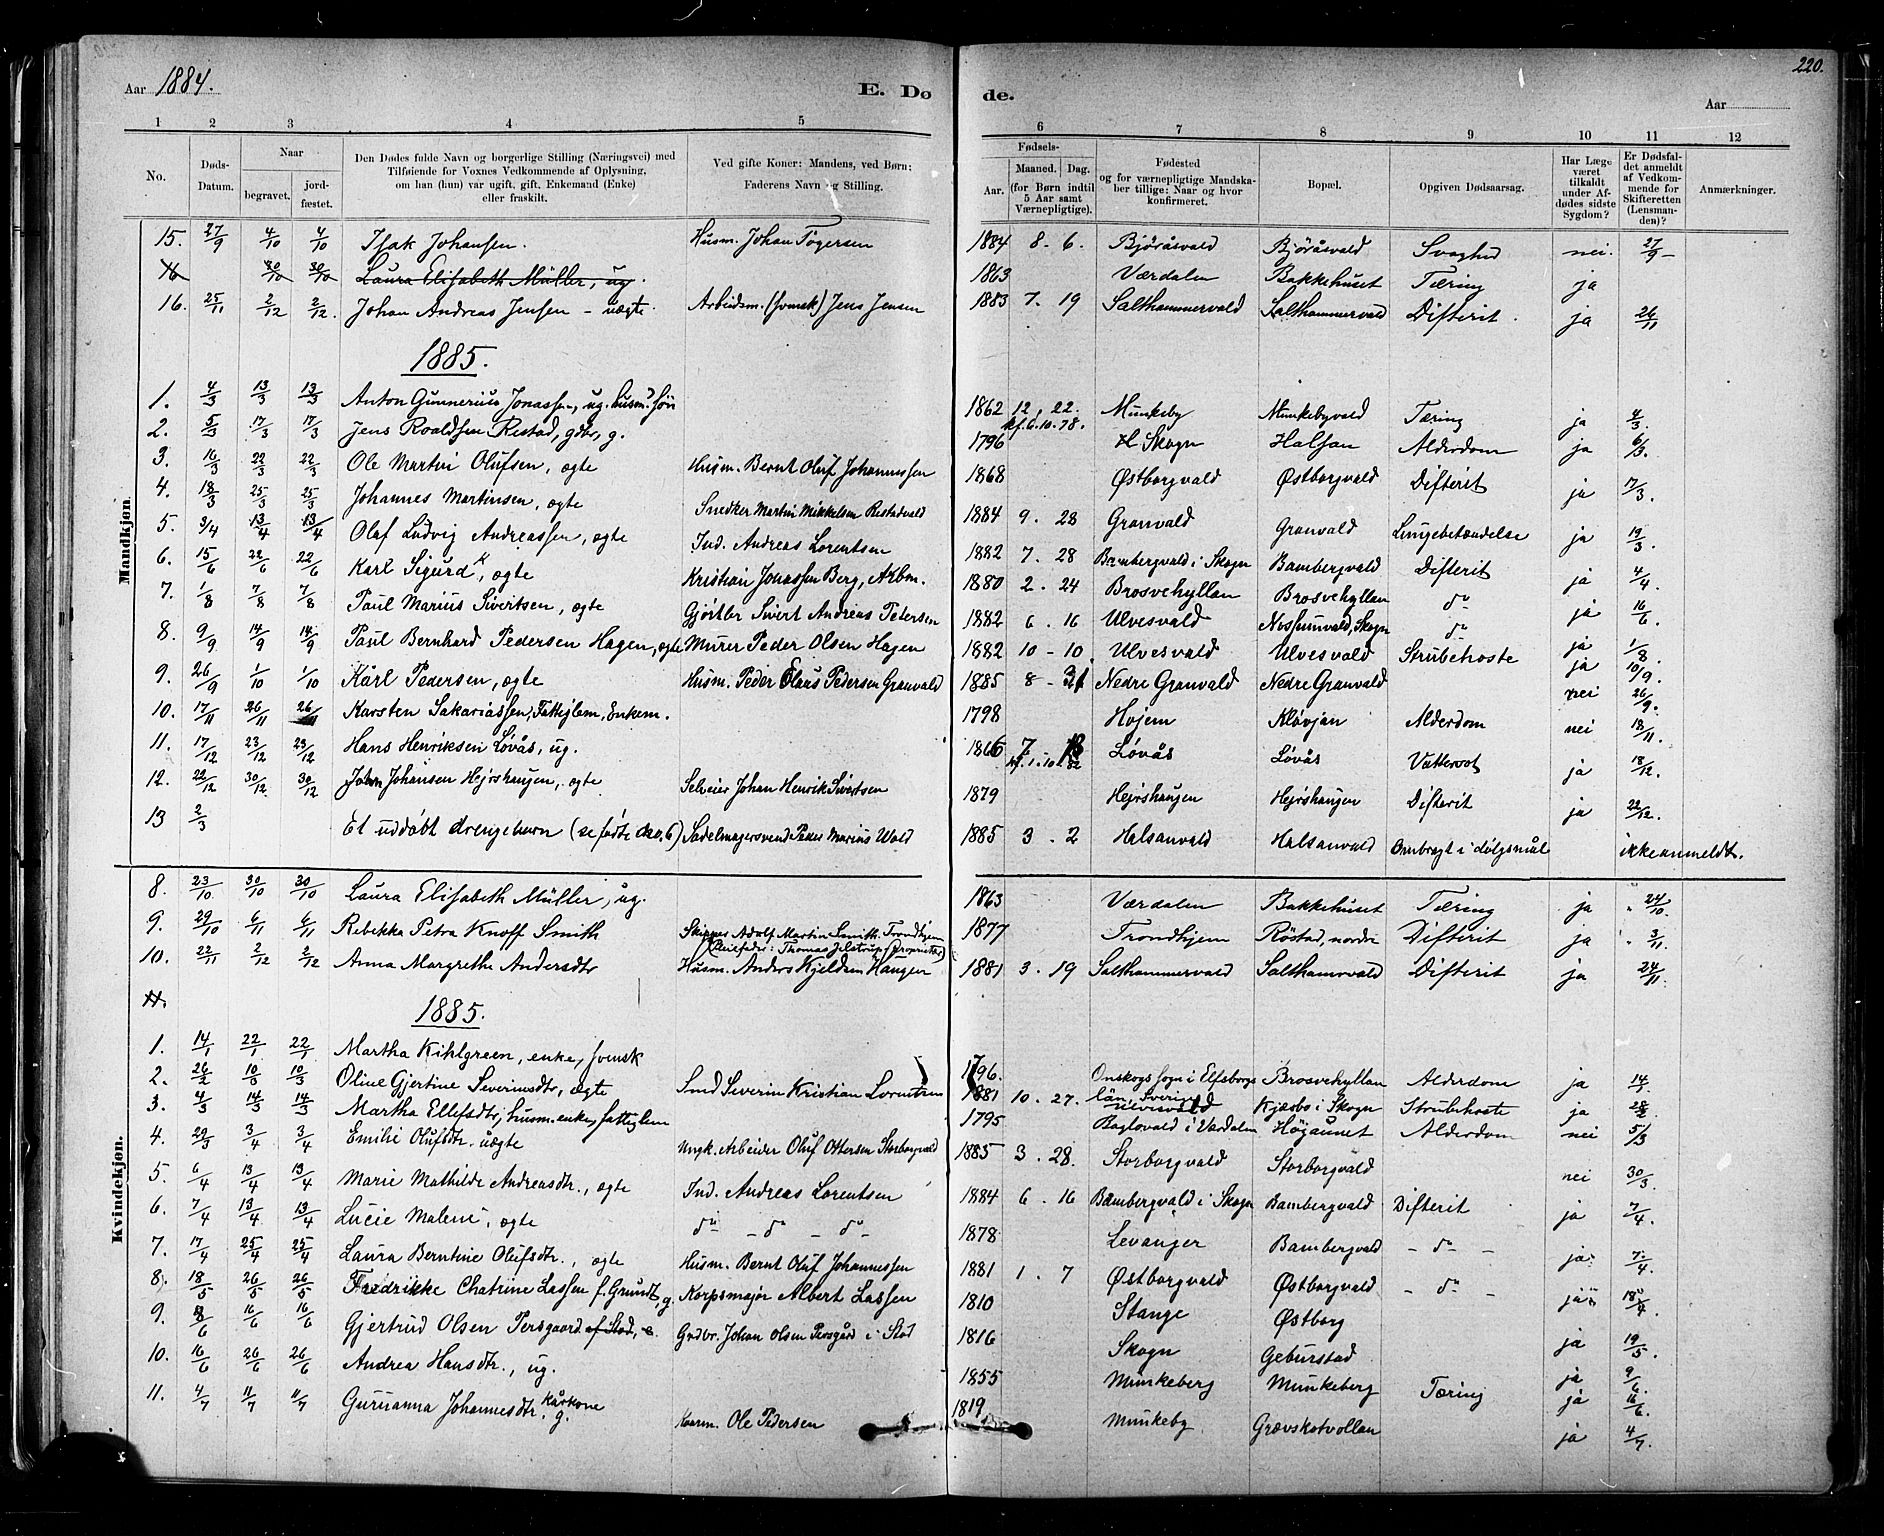 Aar 1884. E. Dø de. 220.
Aar
1 2 3 4 5 6 7 8 9 10 11 12
No. Døds-Datum. Naar begravet. jord-fæstet. Den Dødes fulde Navn og borgerlige Stilling (Næringsvei) med Tilføiende for Voxnes Vedkommende af Oplysning, om han (hun) var ugift, gift, Enkemand (Enke) eller fraskilt. Ved gifte Koner: Mandens, ved Børn: Faderens Navn og Stilling. Fødsels- Aar. Maaned. Dag. (for Børn indtil 5 Aar samt Værnepligtige). Fødested og for værnepligtige Mandskaber tillige: Naar og hvor konfirmeret. Bopæl. Opgiven Dødsaarsag. Har Læge været tilkaldt under Afdødes sidste Sygdom? Er Dødsfaldet anmeldt af Vedkommende for Skifteretten (Lensmanden)? Anmærkninger.
Mandkjøn.
15. 27/9 4/10 4/10 Isak Johansen. Husm. Johan Tøgersen 1884 8. 6. Bjøråsvald Bjøråsvald Svaghed nei. 27/9
16 30/10 30/10 Laura Elisabeth Müller, ug. 1863 Værdalen Bakkehuset Tæring ja
16. 25/11 2/12 2/12. Johan Andreas Jensen - uægte. Arbeidsm. (svensk) Jens Jensen 1883 7. 19 Salthammervald Salthammervald Difterit. ja 26/11
1885.
1. 4/3 13/3 13/3 Anton Gunnerius Jonassen, ug. husm.søn 1862 12. 22. kf. 6.10.78. Munkeby Munkebyvald Tæring ja 4/3.
2. 5/3 17/3 17/3 Jens Roaldsen Restad, gdbr, g. 1796 Skogn Halsan Alderdom ja 6/3.
3. 16/3 22/3 22/3 Ole Martin Olufsen, ægte Husm. Bernt Oluf Johannessen 1868 Østborgvald Østborgvald Difterit ja 17/3.
4. 18/3 25/3 25/3 Johannes Martinsen, ægte Snedker Martin Mikkelsen Restadvald 1884 9. 28 Granvald Granvald Lungebetændelse ja 19/3.
5. 3/4 13/4 13/4 Olaf Ludvig Andreassen, ægte Ind. Andreas Lorentsen 1882 7. 28 Bambergvald i Skogn Bambergvald Difterit ja 4/4.
6. 15/6 22/6 22/6 Karl Sigurd, ægte Kristian Jonassen Berg, Arbm. 1880 2. 24 Brosvehyllan Brosvehyllan do ja 16/6.
7. 1/8 7/8 7/8 Paul Marius Sivertsen, ægte Gjørtler Sivert Andreas Petersen 1882 6. 16 Ulvesvald Skogn do ja 1/8.
8. 9/9 14/9 14/9 Paul Bernhard Pedersen Hagen, ægte Murer Peder Olsen Hagen 1882 10 - 10. Ulvesvald Ulvesvald Strubehoste ja 10/9.
9. 26/9 1/10 1/10 Karl Pedersen, ægte Husm. Peder Claus Pedersen Granvald 1885 8 - 31 Nedre Granvald Nedre Granvald nei 26/9.
10. 17/11 26/11 26/11 Karsten Sakariassen, Fattiglem, Enkem. 1798 Hojem Kløvjan Alderdom nei 18/11.
11. 17/12 23/12 23/12 Hans Henriksen Løvås, ug. 1866 7 kf. 1.10.82 Løvås Løvås Vattersot ja 18/12.
12. 22/12 30/12 30/12 John Johansen Hejrshaugen, ægte Selveier Johan Henrik Sivertsen 1879 Hejrshaugen Hejrshaugen Difterit ja 22/12.
13 2/3 Et uddøbt drengebarn (se fødte no. 6) Sadelmagersvend Peder Marius Wald 1885 3. 2 Halsanvald Halsanvald Ombragt i dølgsmål ikke anmeldt.
Kvindekjøn.
8. 23/10 30/10 30/10 Laura Elisabeth Müller, ug. 1863 Værdalen Bakkehuset Tæring ja 24/10.
9. 29/10 6/11 6/11 Rebekka Petra Knoff Smith Skipper Adolf Martin Smith. Trondhjem (Pleiefader: Thomas Jelstrup, Proprietær) 1877 Trondhjem Röstad, nordre Difterit ja 3/11.
10. 22/11 2/12 2/12 Anna Margrethe Andersdtr Husm. Anders Kjeldsen Haugen 1881 3. 19 Salthammervald Salthammrvald Difterit ja 24/11.
11.
1885.
1. 14/1 22/1 22/1 Martha Kihlgreen, enke, svensk 1796. Onskogs sogn i Elfsborgs län, Sverige Brosvehyllan Alderdom ja 14/1.
2. 26/2 10/3 10/3 Oline Gjertine Severinsdtr, ægte Smed Severin Kristian Lorentsen 1881 10. 27. Ulvesvald Kjæsbo i Skogn Strubehoste ja 28/2
3. 4/3 14/3 14/3 Martha Ellefsdtr, husm.enke, fattiglem 1795 i Værdalen Högaunet Alderdom nei 5/3
4. 29/3 3/4 3/4 Emilie Olufsdtr. uægte Ungk. Arbeider Oluf Ottersen Storborgvald 1885 3. 28. Storborgvald Storborgvald nei 30/3
5. 6/4 13/4 13/4 Marie Mathilde Andreasdtr., ægte Ind. Andreas Lorentsen 1884 6. 16 Bambergvald i Skogn Bambergvald Difterit ja 7/4.
6. 7/4 13/4 13/4 Lucie Malene, ægte do - do - do 1878 Levanger Bambergvald - do - ja 7/4.
7. 17/4 25/4 25/4 Laura Berntine Olufsdtr., ægte Husm. Bernt Oluf Johannessen 1881 1. 7 Østborgvald Østborgvald - do - ja 18/4.
8. 18/5 26/5 26/5 Fredrikke Chatrine Lassen f. Grundt, g. Korpsmajor Albert Lassen 1810 Stange Østborg ja 19/5.
9. 8/6 16/6 16/6 Gjertrud Olsen Persgaard af Stod, e. Grdbr. Johan Olsen Persgård i Stod 1816 Skogn Geburstad ja 9/6.
10. 16/6 26/6 26/6 Andrea Hansdtr., ug. 1855 Munkeberg Munkeberg Tæring ja 16/6.
11. 4/7 11/7 11/7 Guruanna Johannesdtr, kårkone g. Kaarm. Ole Pedersen 1819 Munkeby Grævskotvollan ja 4/7.